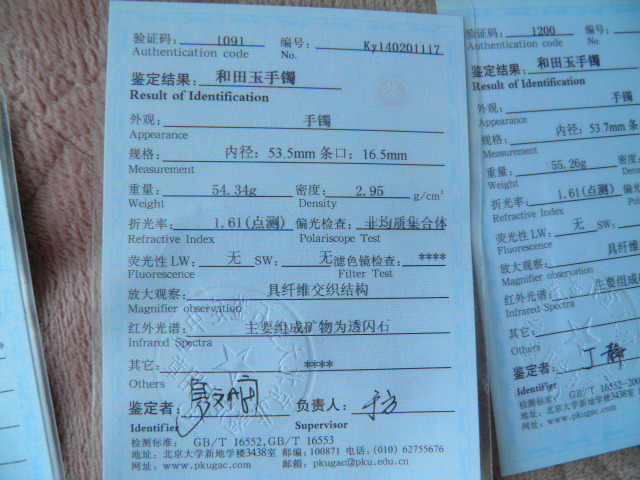 验证码： 1091 编号： Ky140201117
Authentication code No.
鉴定结果： 和田玉手镯
Result of Identification
外观： 手镯
Appearance
规格： 内径：53.5mm 条口：16.5mm
Measurement
重量： 54.34g 密度： 2.95 g/cm³
Weight Density
折光率： 1.61(点测) 偏光检查： 非均质集合体
Refractive Index Polariscope Test
荧光性 LW： 无 SW： 无 滤色镜检查： ****
Fluorescence Filter Test
放大观察： 具纤维交织结构
Magnifier observation
红外光谱： 主要组成矿物为透闪石
Infrared Spectra
其它： ****
Others
鉴定者： 负责人：
Identifier Supervisor
检测标准： GB/T 16552,GB/T 16553
地址：北京大学新地学楼3438室 邮编：100871 电话：(010) 62755676
网址：www.pkugac.com 邮箱：pkugac@pku.edu.cn
验证码： 1200 编号：
Authentication code No.
鉴定结果： 和田玉手镯
Result of Identification
外观： 手镯
Appearance
规格： 内径：53.7mm 条
Measurement
重量： 55.26g 密度：
Weight Density
折光率： 1.61(点测)
Refractive Index
荧光性 LW： 无 SW：
Fluorescence
放大观察： 具纤维
Magnifier observation
红外光谱： 主要组成矿
Infrared Spectra
其它：
Others
鉴定者： 丁静
Identifier
检测标准： GB/T 16552-200
地址：北京大学新地学楼3438
网址：www.pkugac.com